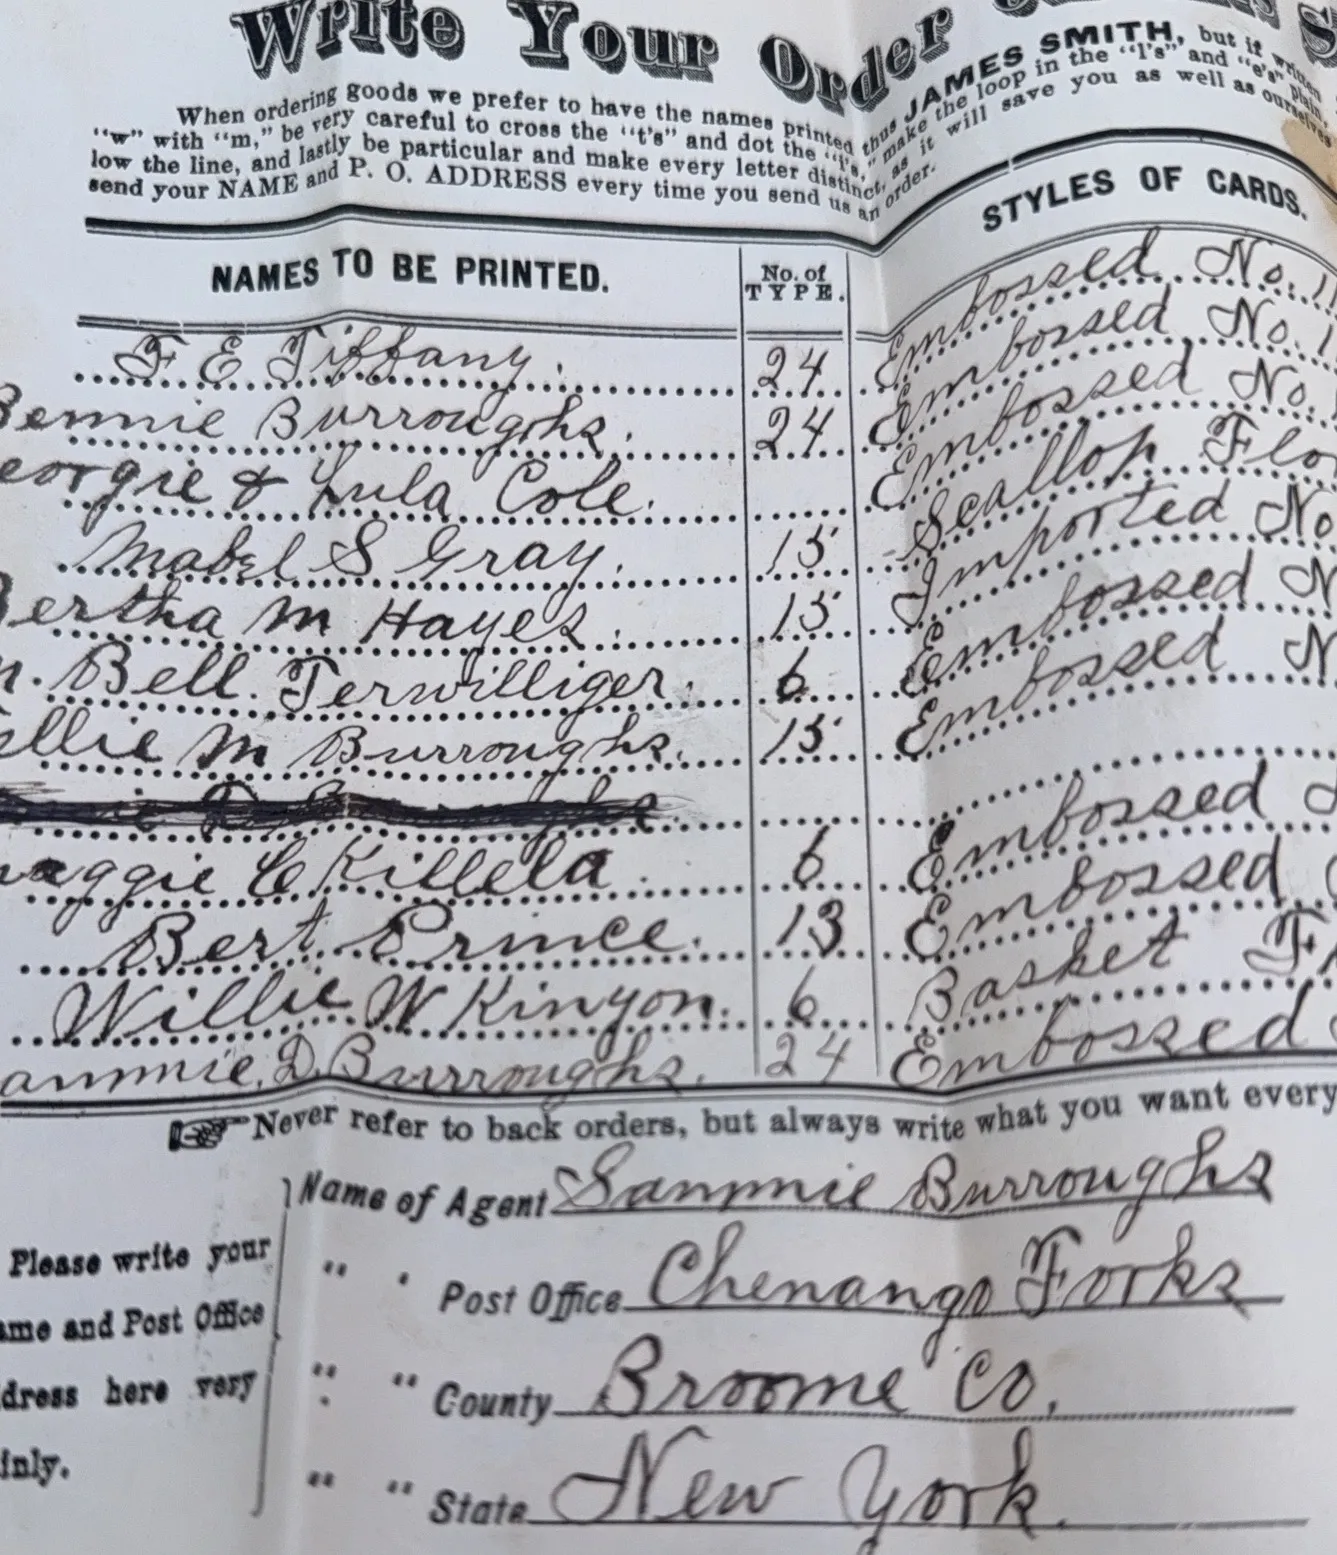 Write Your Order
When ordering goods we prefer to have the names printed thus JAMES SMITH, but if written
"w" with "m," be very careful to cross the "t's" and dot the "i's," make the loop in the "l's" and "e's" plain,
low the line, and lastly be particular and make every letter distinct, as it will save you as well as ourselves
send your NAME and P. O. ADDRESS every time you send us an order.
NAMES TO BE PRINTED. No. of TYPE. STYLES OF CARDS.
F E Tiffany. 24 Embossed No. 1
Bennie Burroughs. 24 Embossed No. 1
eorgie & Lula Cole. Embossed No.
Mabel S Gray. 15 Scallop Flo
Bertha M Hayes. 15 Imported No
m. Bell. Terwilliger. 6 Embossed N
ellie M Burroughs. 15 Embossed N
aggie C Killela 6 Embossed
Bert Prince. 13 Embossed
Willie W Kinyon. 6 Basket F
ammie. D. Burroughs. 24 Embossed
Never refer to back orders, but always write what you want every
Please write your
ame and Post Office
dress here very
inly.
Name of Agent Sammie Burroughs
" " Post Office Chenango Forks
" " County Broome Co.
" " State New York.